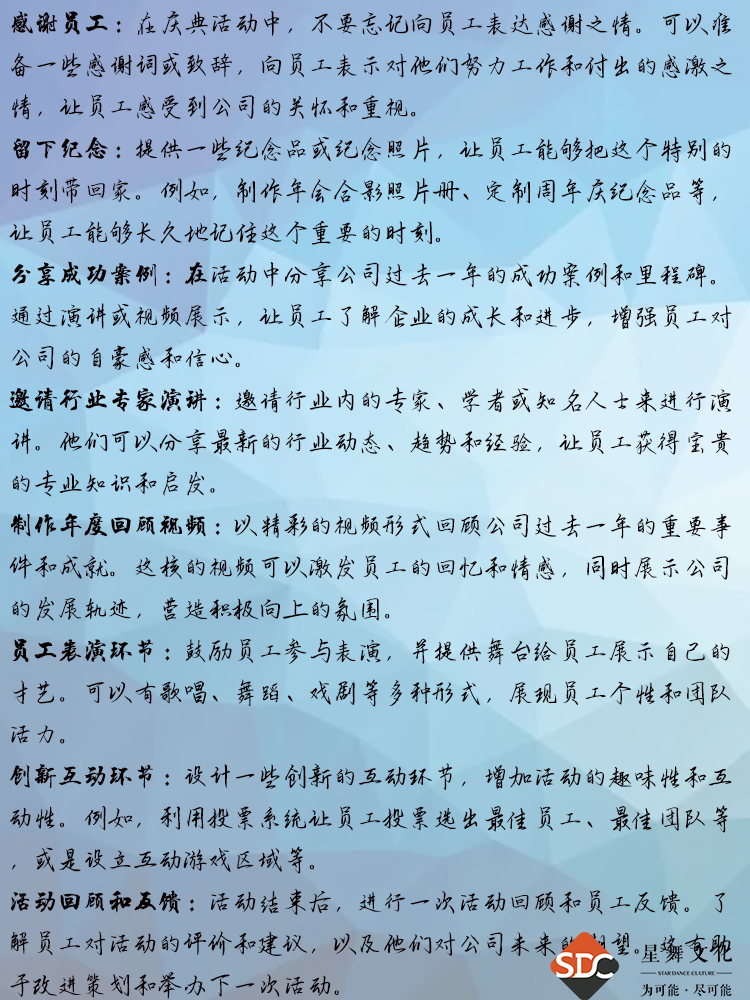 感谢员工：在庆典活动中，不要忘记向员工表达感谢之情。可以准
备一些感谢词或致辞，向员工表示对他们努力工作和付出的感激之
情，让员工感受到公司的关怀和重视。
留下纪念：提供一些纪念品或纪念照片，让员工能够把这个特别的
时刻带回家。例如，制作年会合影照片册、定制周年庆纪念品等，
让员工能够长久地记住这个重要的时刻。
分享成功案例：在活动中分享公司过去一年的成功案例和里程碑。
通过演讲或视频展示，让员工了解企业的成长和进步，增强员工对
公司的自豪感和信心。
邀请行业专家演讲：邀请行业内的专家、学者或知名人士来进行演
讲。他们可以分享最新的行业动态、趋势和经验，让员工获得宝贵
的专业知识和启发。
制作年度回顾视频：以精彩的视频形式回顾公司过去一年的重要事
件和成就。这核的视频可以激发员工的回忆和情感，同时展示公司
的发展轨迹，营造积极向上的氛围。
员工表演环节：鼓励员工参与表演，并提供舞台给员工展示自己的
才艺。可以有歌唱、舞蹈、戏剧等多种形式，展现员工个性和团队
活力。
创新互动环节：设计一些创新的互动环节，增加活动的趣味性和互
动性。例如，利用投票系统让员工投票选出最佳员工、最佳团队等
，或是设立互动游戏区域等。
活动回顾和反馈：活动结束后，进行一次活动回顾和员工反馈。了
解员工对活动的评价和建议，以及他们对公司未来的期望。这有助
于改进策划和举办下一次活动。
SDC
星舞文化
STAR DANCE CULTURE
为可能·尽可能